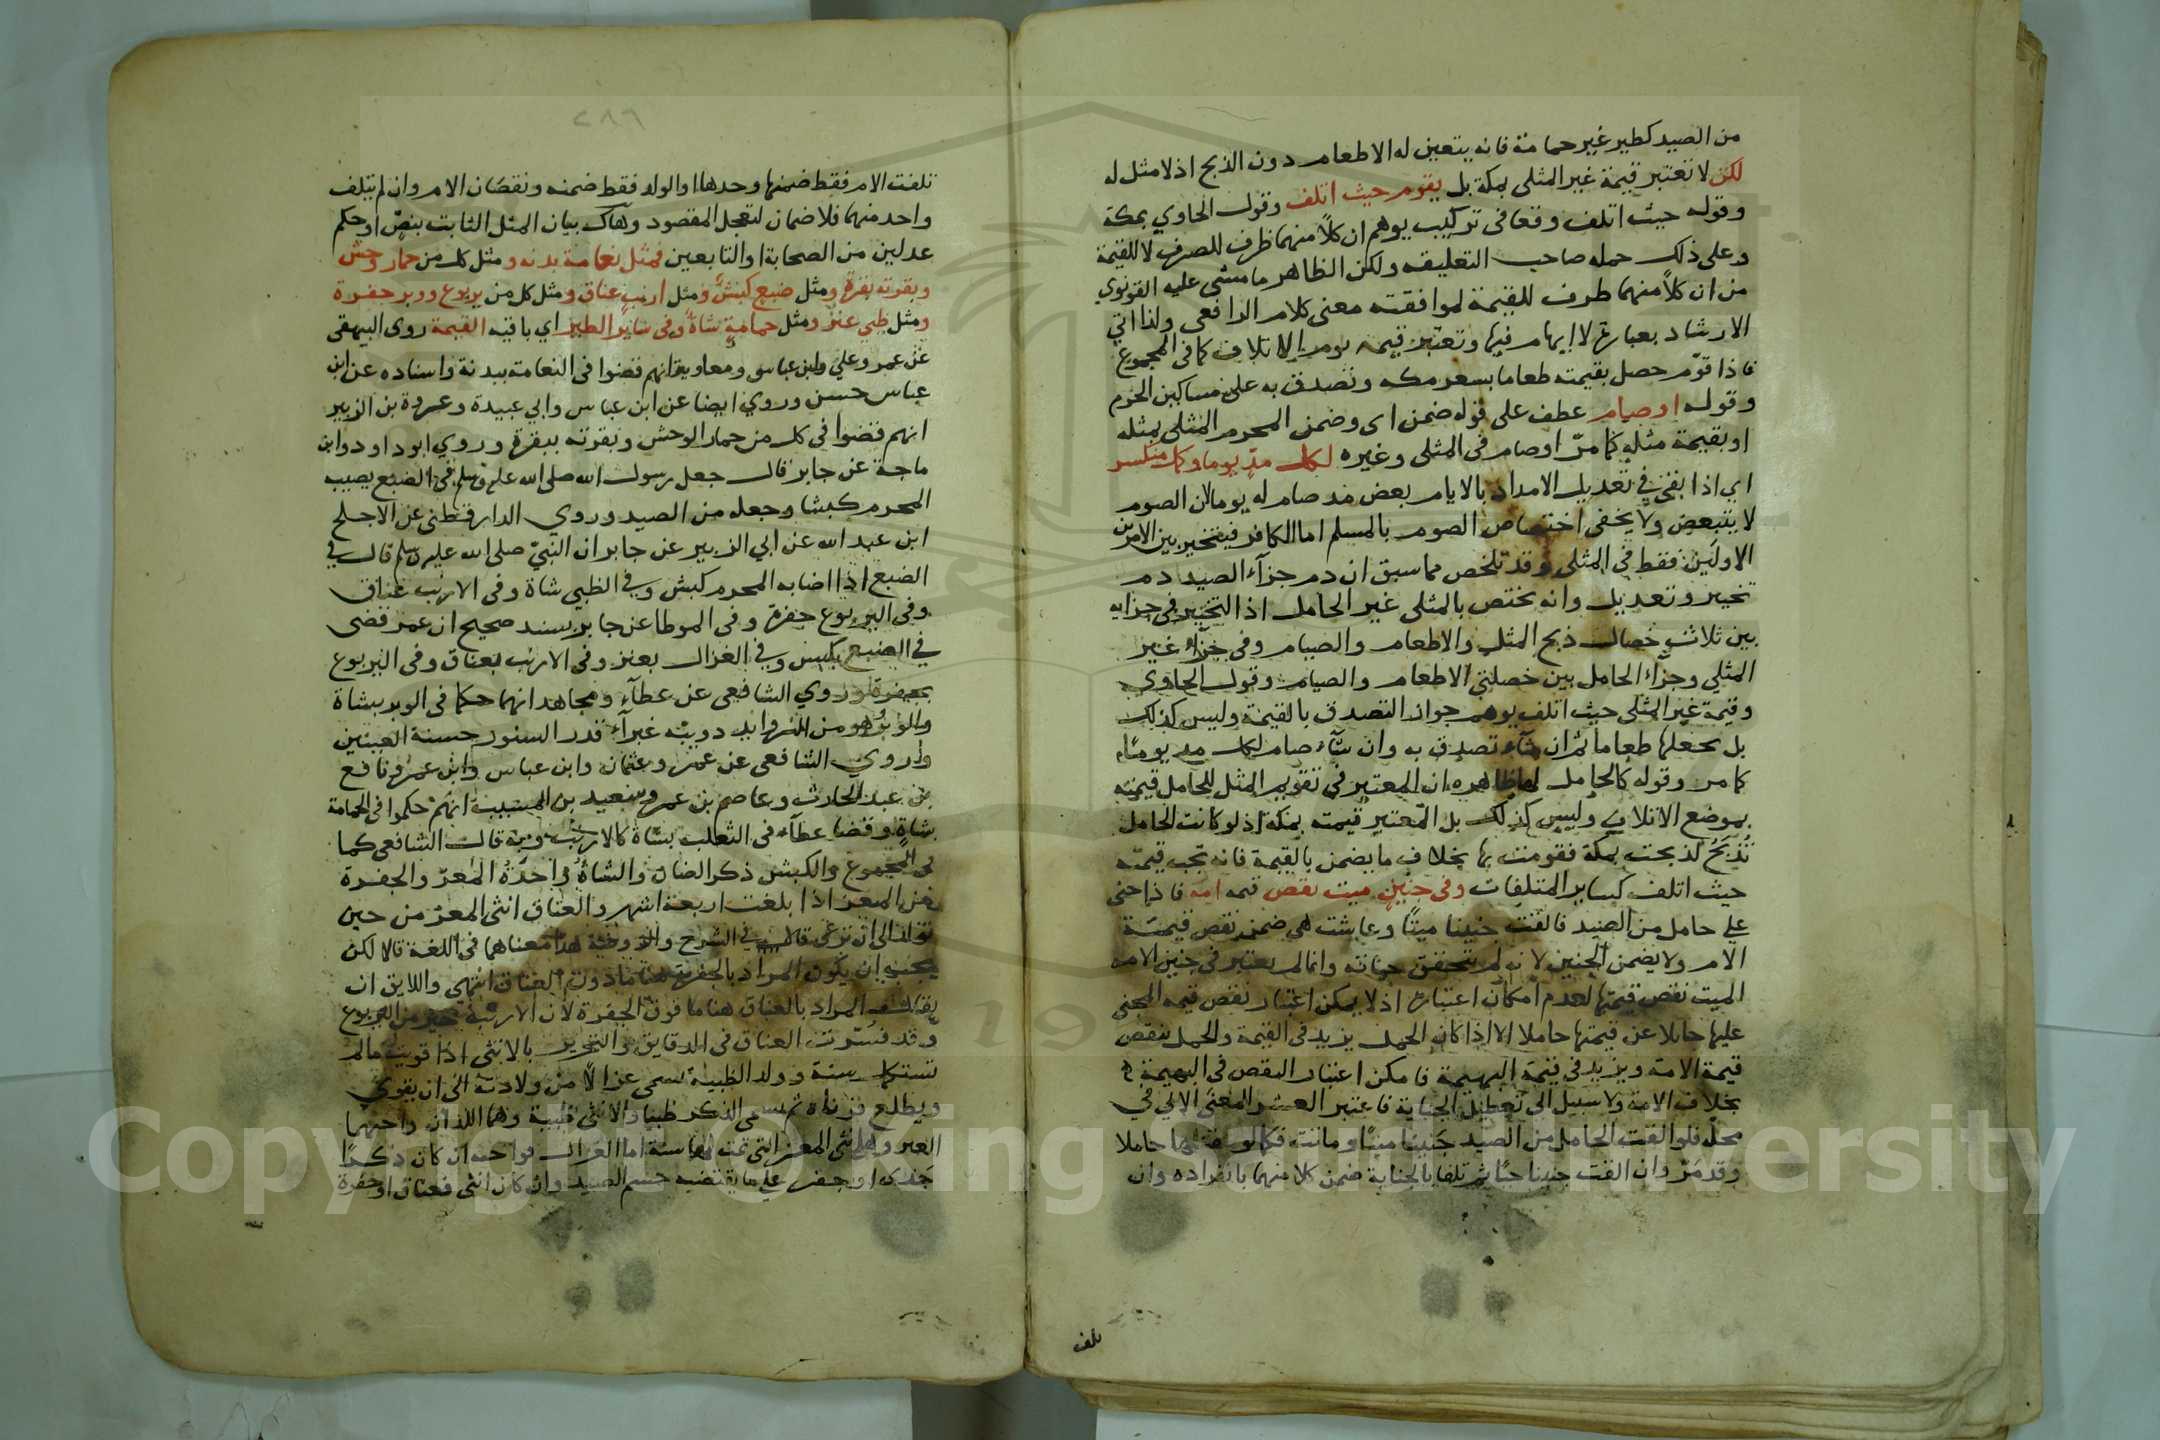 من الصيد كطير غير حمامة فانه يتعين له الاطعام دون الذبح اذلا مثل له
لكن لا تعتبر قيمة غير المثلى بمكة بل يقوم حيث اتلف وقول الحاوي بمكة
وقوله حيث اتلف وقعا فى تركيب يوهم ان كلاً منهما ظرف للصرف لا للقيمة
وعلى ذلك حمله صاحب التعليقه ولكن الظاهر ما مشى عليه القونوي
من ان كلاً منهما ظرف للقيمة لموافقته معنى كلام الرافعى ولذا اتي
الارشاد بعبارة لا ايهام فيها وتعتبر قيمه يوم الاتلاف كما فى المجموع
فاذا قوّم حصل بقيمته طعاما بسعر مكه وتصدق به على مساكين الحرم
وقوله اوصيام عطف على قوله ضمن اى وضمن المحرم المثلى بمثله
او بقيمة مثله كما مرّ اوصام فى المثلى وغيره لكل مدّ يوما وكل منكسر
اي اذا بقى في تعديل الامداد بالايام بعض مد صام له يوما لان الصوم
لا يتبعض ولا يخفى اختصاص الصوم بالمسلم اما الكافر فيتخير بين الامرين
الاولين فقط في المثلى وقد تلخص مما سبق ان دم جزآء الصيد دم
تخيير وتعديل وانه يختص بالمثلى غير الحامل اذ التخيير فى جزايه
بين ثلاث خصال ذبح المثل والاطعام والصيام وفى جزآء غير
المثلي وجزآء الحامل بين خصلتي الاطعام والصيام وقول الحاوي
وقيمة غير المثلى حيث اتلف يوهم جواز التصدق بالقيمة وليس كذلك
بل يجعلها طعاما ثم ان شآء تصدق به وان شآء صام لكل مد يومًا
كما مر وقوله كالحامل ظاهره ان المعتبر في تقويم المثل للحامل قيمته
بموضع الاتلاف وليس كذلك بل المعتبر قيمته بمكة اذ لو كانت الحامل
تُذبَحُ لذبحت بمكة فقومت بها بخلاف ما يضمن بالقيمة فانه تجب قيمته
حيث اتلف كساير المتلفات وفى جنين ميت نقص قيمه امه فاذا جنى
علي حامل من الصيد فالقت جنينا ميتًا وعاشت هى ضمن نقص قيمة
الام ولا يضمن الجنين لانه لم تتحقق حياته وانما لم يعتبر في جنين الامه
الميت نقص قيمتها لعدم امكان اعتباره اذ لا يمكن اعتبار نقص قيمه المجني
عليها حايلا عن قيمتها حاملا الا اذا كان الحمل يزيد فى القيمة والحمل ينقص
قيمة الامة ويزيد فى قيمة البهيمة فامكن اعتبار النقص فى البهيمة
بخلاف الامة ولا سبيل الى تعطيل الجناية فاعتبر العشر لمعنى الاتي في
محلّه فلو القت الحامل من الصيد جنينا ميتًا وماتت فكما لو قتلها حاملا
وقد مَرّ وان القت جنينا حيًا ثم تلفا بالجناية ضمن كلا منهما بانفراده وان
تلف
تلفت الام فقط ضمنها وحدها او الولد فقط ضمنه ونقصان الام وان لم يتلف
واحد منهما فلا ضمان لتعجل المقصود وهاك بيان المثل الثابت بنصّ او حكم
عدلين من الصحابة او التابعين فمثل نعامة بدنه ومثل كل من حمار وحش
وبقرته بقرة ومثل ضبع كبش ومثل ارنب عناق ومثل كل من يربوع ووبر جفرة
ومثل ظبي عنز ومثل حمامة شاة وفى ساير الطير اي باقيه القيمة روى البيهقى
عن عمر وعلي وابن عباس ومعاوية انهم قضوا فى النعامة ببدنة واسناده عن ابن
عباس حسن وروي ايضا عن ابن عباس وابي عبيدة وعروة بن الزبير
انهم قضوا في كل من حمار الوحش وبقرته ببقرة وروي ابو داود وابن
ماجة عن جابر قال جعل رسول الله صلى الله عليه وسلم فى الضبع يصيب
المحرم كبشا وجعله من الصيد وروي الدار قطنى عن الاجلح
ابن عبد الله عن ابي الزبير عن جابر ان النبيّ صلى الله عليه وسلم قال في
الضبع اذا اصابه المحرم كبش وفي الظبي شاة وفى الارنب عناق
وفى اليربوع جفرة وفى الموطا عن جابر بسند صحيح ان عمر قضى
في الضبع بكبش وفي الغزال بعنز وفى الارنب بعناق وفى اليربوع
بجفرة وروي الشافعى عن عطآء ومجاهد انهما حكما فى الوبر بشاة
والوبر وهو من دويبّه غبرآء قدر السنور حسنة العينين
وروي الشافعى عن عمر وعثمان وابن عباس وابن عمر ونافع
بن عبد الحارث وعاصم بن عمر وسعيد بن المسيب انهم حكموا فى الحمامة
بشاة وقضا عطآء فى الثعلب بشاة كالارنب وبه قال الشافعى كما
فى المجموع والكبش ذكر الضان والشاة واحدة المعز والجفرة
من المعز اذا بلغت اربعة اشهر والعناق انثى المعز من حين
تولد الى ان ترعى قال في الشرح والروضة هذا معناهما فى اللغة قالا لكن
يجب ان يكون المراد بالجفرة هنا ما دون العناق انتهى واللايق ان
يقال المراد بالعناق هنا ما فوق الجفرة لان الارنب خير من اليربوع
وقد فسّرت العناق فى الدقايق والتحرير بالانثى اذا قويت مالم
تستكمل سنة وولد الظبية يسمى غزالاً من ولادته الى ان يقوي
ويطلع قرناه ثم يسمى الذكر ظبيا والانثى ظبية وهما اللذان واجبهما
العنز وهي انثى المعز التى تمت لها سنة اما الغزال فواجبه ان كان ذكرًا
جدى او جفر علي ما يقتضيه جسم الصيد وان كان انثى فعناق او جفرة